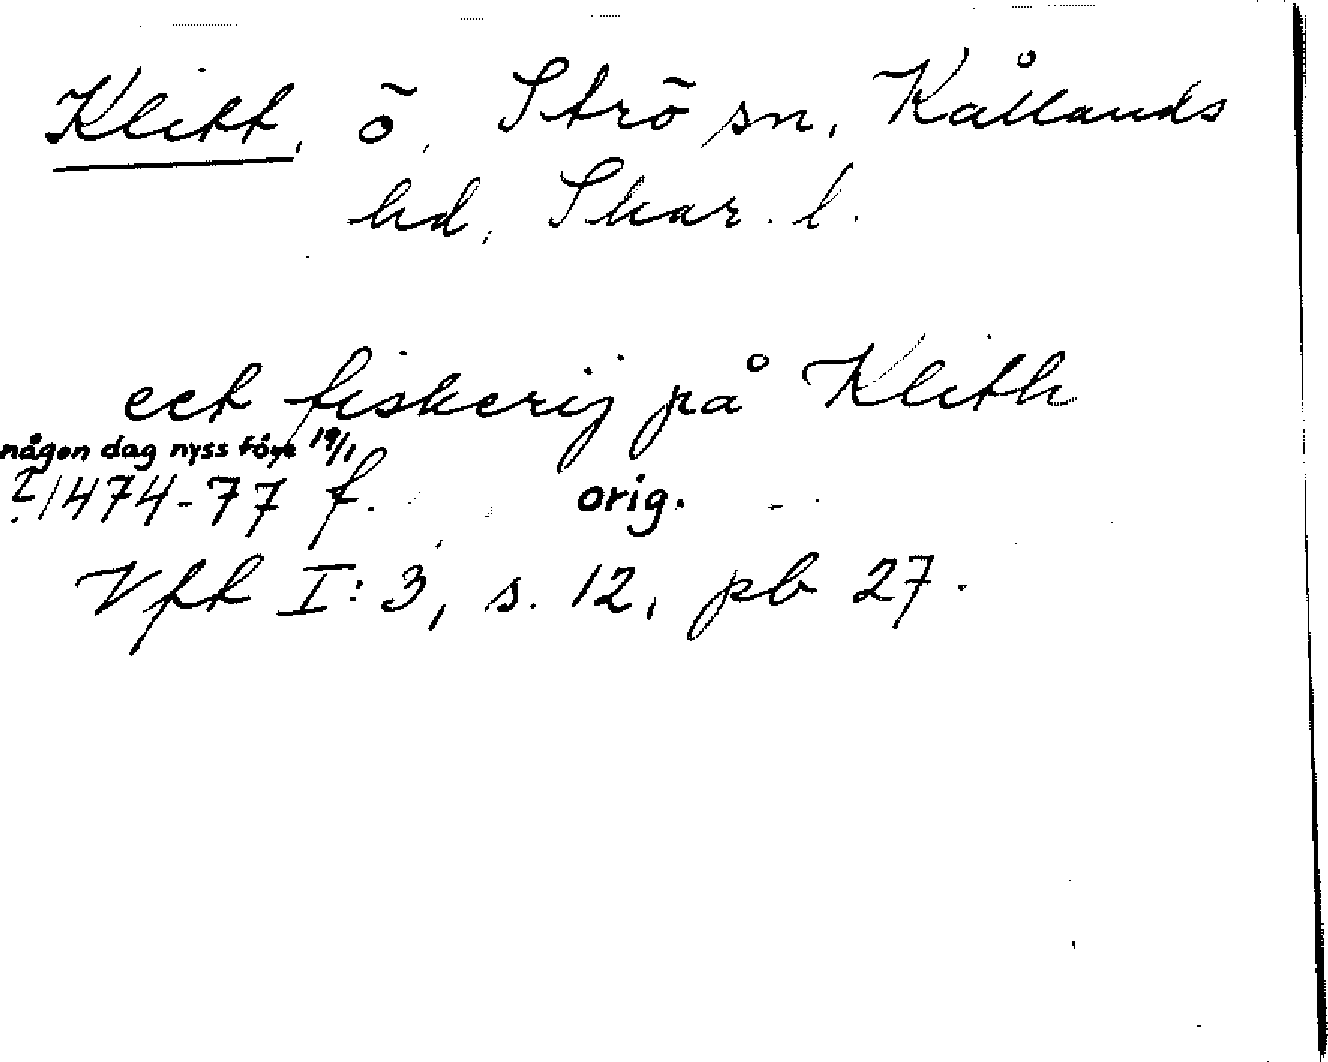 Klitt, ö, Strö sn, Kållands
hd, Skar. l.
eet fiskerij på Klith
någon dag nyss före 19/1
?1474-77 f. orig.
Vft I:3, s. 12, pb 27.